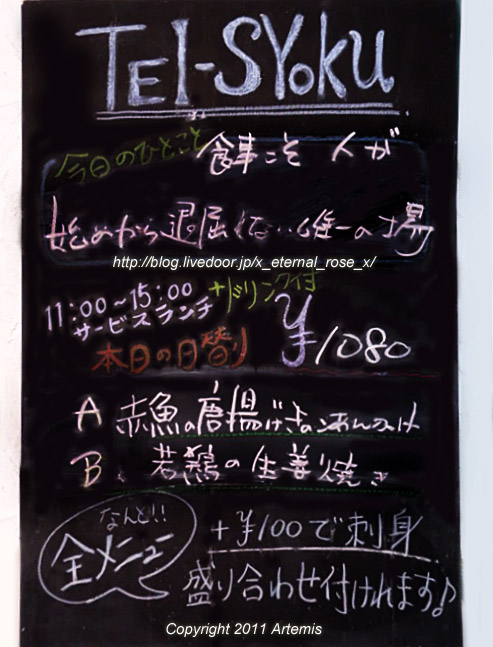 TEI-SYOKU
今日のひとこと 食事こそ 人が
始めから退屈しない唯一の場
http://blog.livedoor.jp/x_eternal_rose_x/
11:00~15:00 +ドリンク付
サービスランチ
本日の日替り ¥/1080
A 赤魚の唐揚げきのこあんかけ
B 若鶏の生姜焼き
なんと!! +¥100で刺身
全メニュー 盛り合わせ付けれます♪
Copyright 2011 Artemis